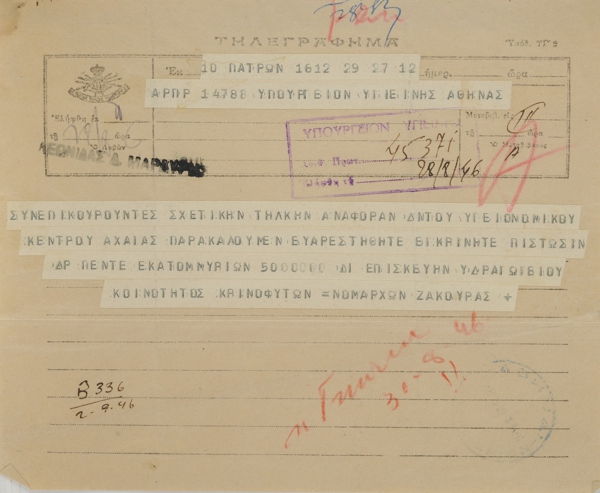 ΤΗΛΕΓΡΑΦΗΜΑ
Ἐκ 10 ΠΑΤΡΩΝ 1612 29 27 12 ὥρα
ΑΡΠΡ 14788 ΥΠΟΥΡΓΕΙΟΝ ΥΓΙΕΙΝΗΣ ΑΘΗΝΑΣ
Ἐλήφθη ἐκ
ὥρα
ΛΕΩΝΙΔΑΣ Δ
ΥΠΟΥΡΓΕΙΟΝ
45371
28/8/46
ΣΥΝΕΠΙΚΟΥΡΟΥΝΤΕΣ ΣΧΕΤΙΚΗΝ ΤΗΛΚΗΝ ΑΝΑΦΟΡΑΝ ΔΝΤΟΥ ΥΓΕΙΟΝΟΜΙΚΟΥ
ΚΕΝΤΡΟΥ ΑΧΑΙΑΣ ΠΑΡΑΚΑΛΟΥΜΕΝ ΕΥΑΡΕΣΤΗΘΗΤΕ ΕΓΚΡΙΝΗΤΕ ΠΙΣΤΩΣΙΝ
ΔΡ ΠΕΝΤΕ ΕΚΑΤΟΜΜΥΡΙΩΝ 5000000 ΔΙ ΕΠΙΣΚΕΥΗΝ ΥΔΡΑΓΩΓΕΙΟΥ
ΚΟΙΝΟΤΗΤΟΣ ΚΡΙΝΟΦΥΤΩΝ =ΝΟΜΑΡΧΩΝ ΖΑΚΟΥΡΑΣ +
46
30-8
B 336
2.9.46